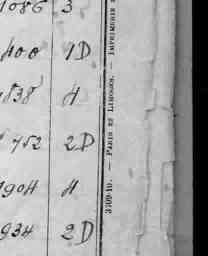 1086 3
400 1D
1838 4
752 2D
1904 4
934 2D
3509-10. — PARIS ET LIMOGES. — IMPRIMERIE